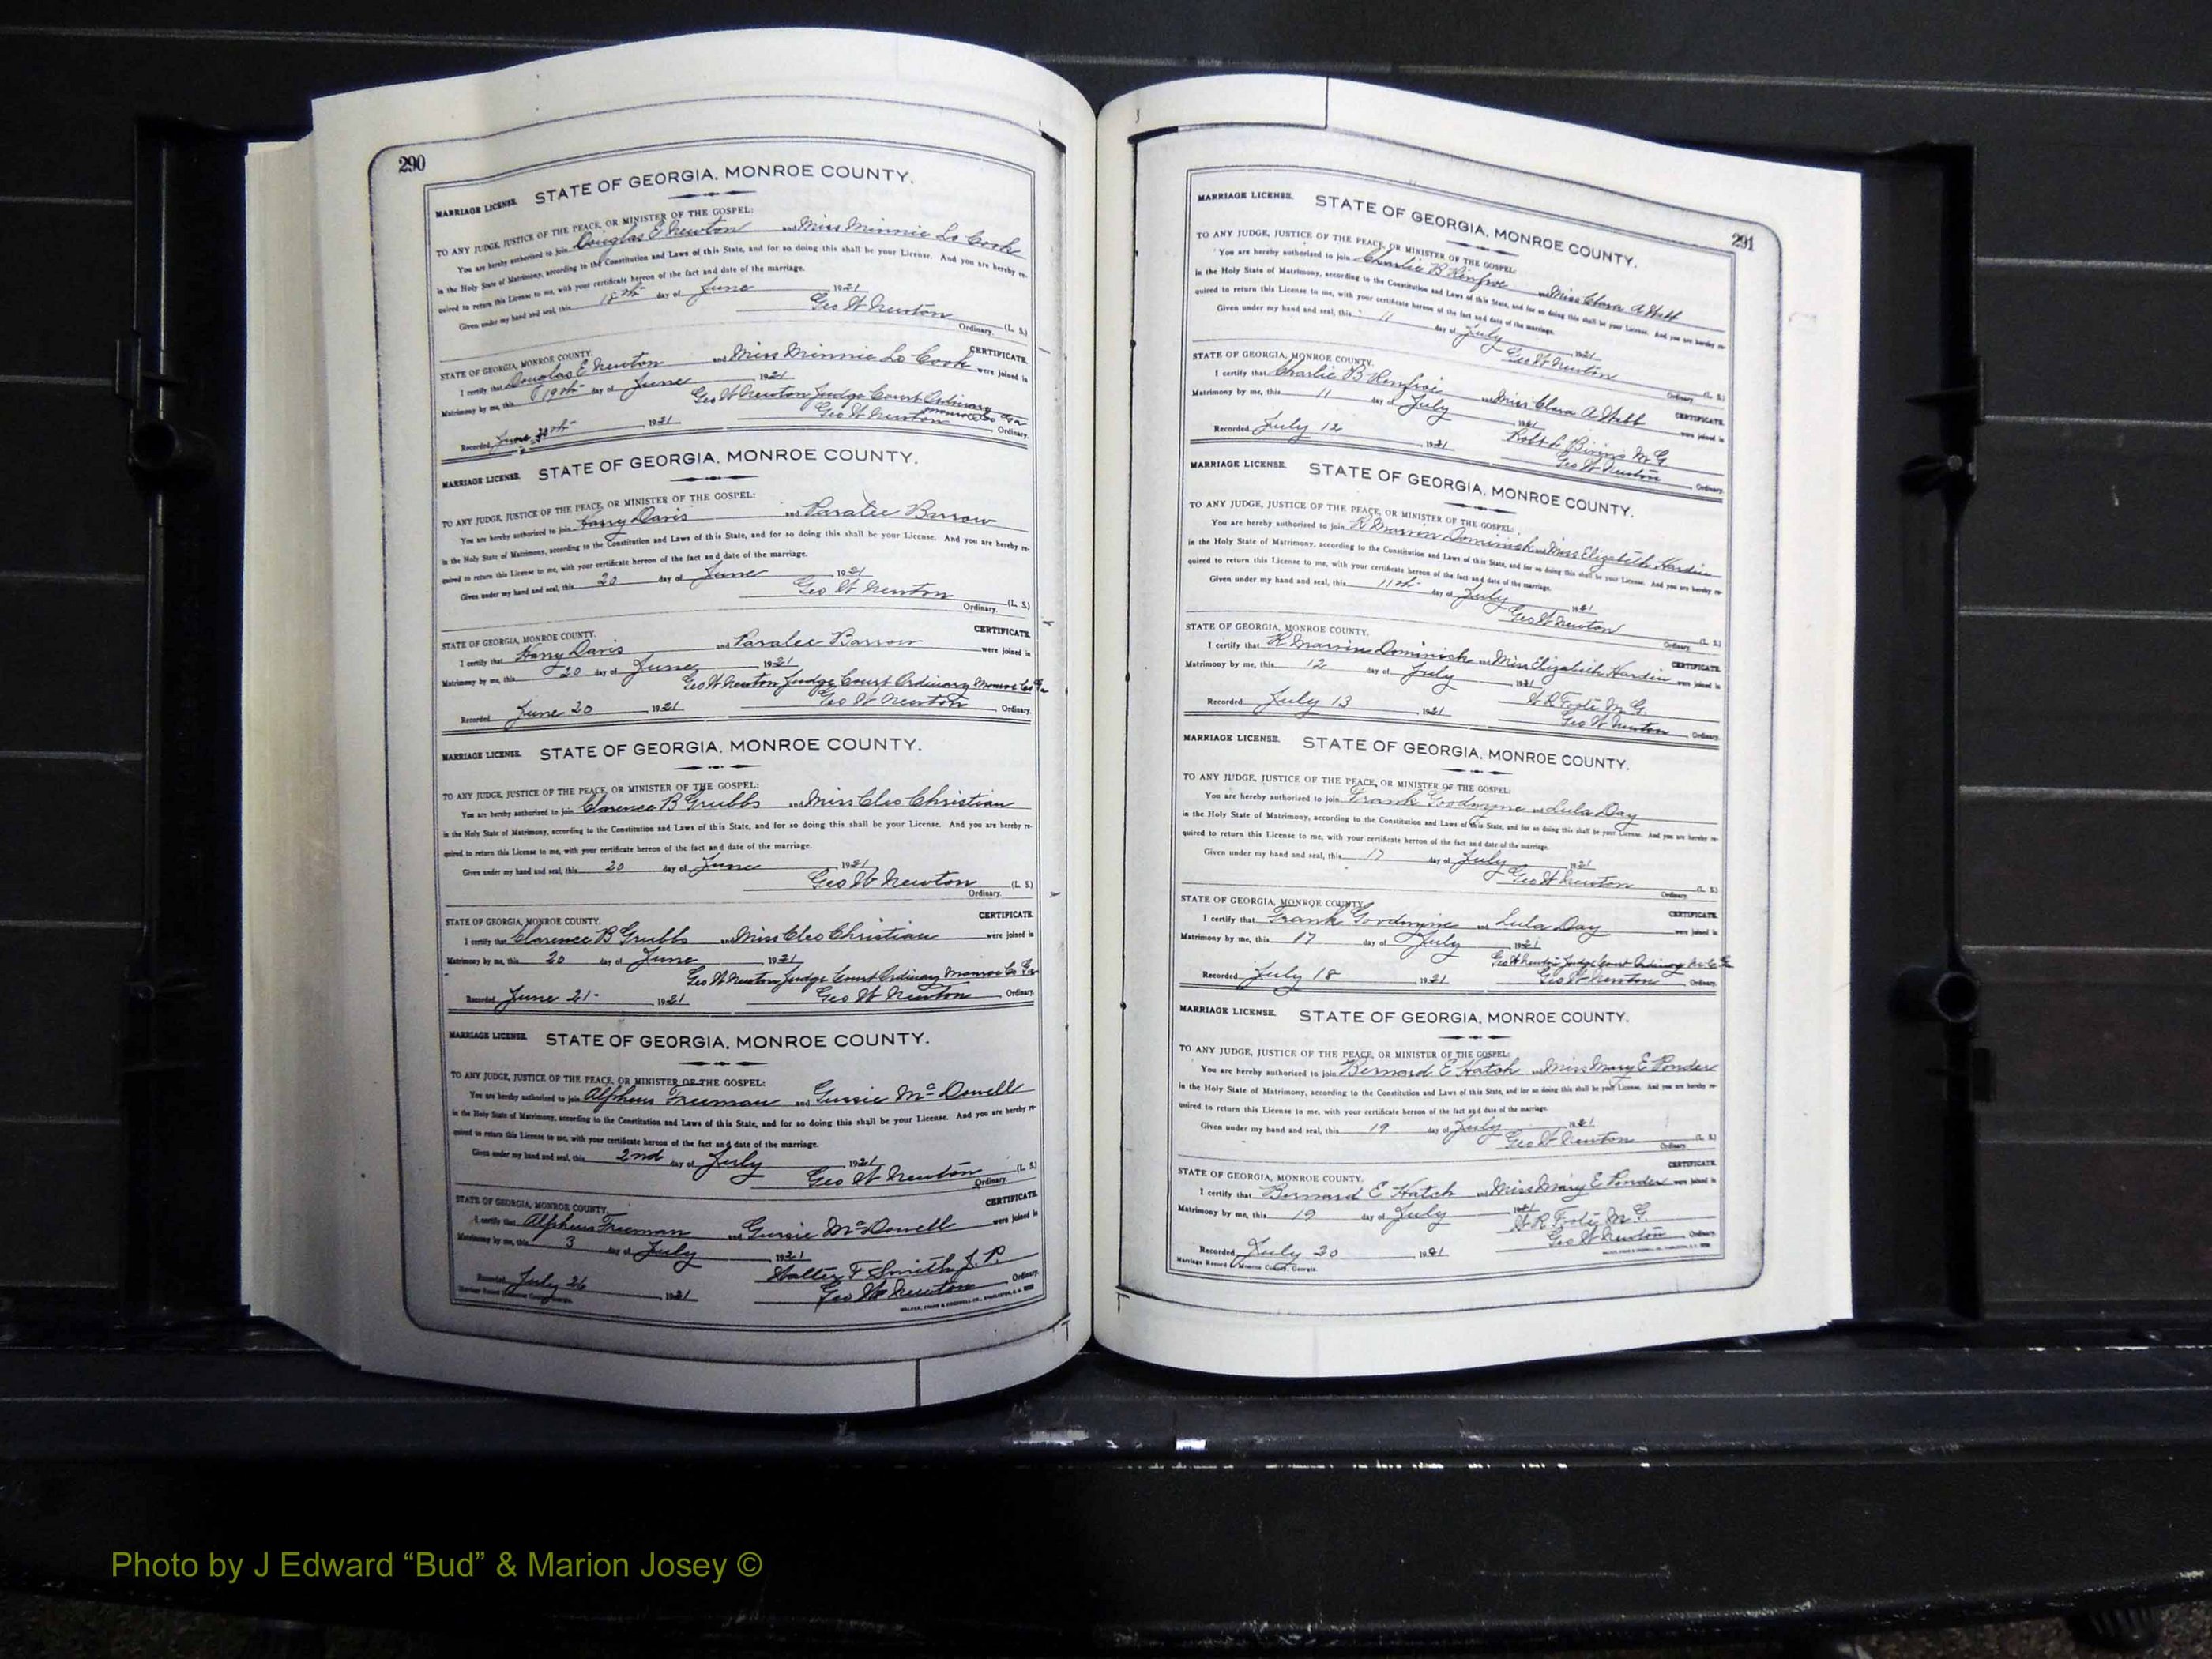 290
MARRIAGE LICENSE. STATE OF GEORGIA, MONROE COUNTY.
TO ANY JUDGE, JUSTICE OF THE PEACE, OR MINISTER OF THE GOSPEL:
You are hereby authorized to join Douglas E Newton and Miss Minnie Lo Cook
in the Holy State of Matrimony, according to the Constitution and Laws of this State, and for so doing this shall be your License. And you are hereby re-
quired to return this License to me, with your certificate hereon of the fact and date of the marriage.
Given under my hand and seal, this 18th day of June 1921
Geo W Newton (L. S.)
Ordinary.
STATE OF GEORGIA, MONROE COUNTY. CERTIFICATE.
I certify that Douglas E Newton and Miss Minnie Lo Cook were joined in
Matrimony by me, this 19th day of June 1921
Geo W Newton Judge Court Ordinary Monroe Co Ga
Recorded June 1921 Geo W Newton Ordinary.
MARRIAGE LICENSE. STATE OF GEORGIA, MONROE COUNTY.
TO ANY JUDGE, JUSTICE OF THE PEACE, OR MINISTER OF THE GOSPEL:
You are hereby authorized to join Harry Davis and Paralee Barrow
in the Holy State of Matrimony, according to the Constitution and Laws of this State, and for so doing this shall be your License. And you are hereby re-
quired to return this License to me, with your certificate hereon of the fact and date of the marriage.
Given under my hand and seal, this 20 day of June 1921
Geo W Newton (L. S.)
Ordinary.
STATE OF GEORGIA, MONROE COUNTY. CERTIFICATE.
I certify that Harry Davis and Paralee Barrow were joined in
Matrimony by me, this 20 day of June 1921
Geo W Newton Judge Court Ordinary Monroe Co Ga
Recorded June 20 1921 Geo W Newton Ordinary.
MARRIAGE LICENSE. STATE OF GEORGIA, MONROE COUNTY.
TO ANY JUDGE, JUSTICE OF THE PEACE, OR MINISTER OF THE GOSPEL:
You are hereby authorized to join Clarence B Grubbs and Miss Cleo Christian
in the Holy State of Matrimony, according to the Constitution and Laws of this State, and for so doing this shall be your License. And you are hereby re-
quired to return this License to me, with your certificate hereon of the fact and date of the marriage.
Given under my hand and seal, this 20 day of June 1921
Geo W Newton (L. S.)
Ordinary.
STATE OF GEORGIA, MONROE COUNTY. CERTIFICATE.
I certify that Clarence B Grubbs and Miss Cleo Christian were joined in
Matrimony by me, this 20 day of June 1921
Geo W Newton Judge Court Ordinary Monroe Co Ga
Recorded June 21- 1921 Geo W Newton Ordinary.
MARRIAGE LICENSE. STATE OF GEORGIA, MONROE COUNTY.
TO ANY JUDGE, JUSTICE OF THE PEACE, OR MINISTER OF THE GOSPEL:
You are hereby authorized to join Alpheus Freeman and Gussie McDowell
in the Holy State of Matrimony, according to the Constitution and Laws of this State, and for so doing this shall be your License. And you are hereby re-
quired to return this License to me, with your certificate hereon of the fact and date of the marriage.
Given under my hand and seal, this 2nd day of July 1921
Geo W Newton (L. S.)
Ordinary.
STATE OF GEORGIA, MONROE COUNTY. CERTIFICATE.
I certify that Alpheus Freeman and Gussie McDowell were joined in
Matrimony by me, this 3 day of July 1921
Walter F Smith J. P.
Recorded July 26 1921 Geo W Newton Ordinary.
291
MARRIAGE LICENSE. STATE OF GEORGIA, MONROE COUNTY.
TO ANY JUDGE, JUSTICE OF THE PEACE, OR MINISTER OF THE GOSPEL:
You are hereby authorized to join Charlie B Renfroe and Miss Clara A Webb
in the Holy State of Matrimony, according to the Constitution and Laws of this State, and for so doing this shall be your License. And you are hereby re-
quired to return this License to me, with your certificate hereon of the fact and date of the marriage.
Given under my hand and seal, this 11 day of July 1921
Geo W Newton (L. S.)
Ordinary.
STATE OF GEORGIA, MONROE COUNTY.
I certify that Charlie B Renfroe and Miss Clara A Webb CERTIFICATE. were joined in
Matrimony by me, this 11 day of July 1921
Robt L Bivins M G
Recorded July 12 1921 Geo W Newton Ordinary.
MARRIAGE LICENSE. STATE OF GEORGIA, MONROE COUNTY.
TO ANY JUDGE, JUSTICE OF THE PEACE, OR MINISTER OF THE GOSPEL:
You are hereby authorized to join R Marvin Dominick and Miss Elizabeth Hardin
in the Holy State of Matrimony, according to the Constitution and Laws of this State, and for so doing this shall be your License. And you are hereby re-
quired to return this License to me, with your certificate hereon of the fact and date of the marriage.
Given under my hand and seal, this 11th day of July 1921
Geo W Newton (L. S.)
Ordinary.
STATE OF GEORGIA, MONROE COUNTY. CERTIFICATE.
I certify that R Marvin Dominick and Miss Elizabeth Hardin were joined in
Matrimony by me, this 12 day of July 1921
W R Foote M. G.
Recorded July 13 1921 Geo W Newton Ordinary.
MARRIAGE LICENSE. STATE OF GEORGIA, MONROE COUNTY.
TO ANY JUDGE, JUSTICE OF THE PEACE, OR MINISTER OF THE GOSPEL:
You are hereby authorized to join Frank Goodwyne and Lula Day
in the Holy State of Matrimony, according to the Constitution and Laws of this State, and for so doing this shall be your License. And you are hereby re-
quired to return this License to me, with your certificate hereon of the fact and date of the marriage.
Given under my hand and seal, this 17 day of July 1921
Geo W Newton (L. S.)
Ordinary.
STATE OF GEORGIA, MONROE COUNTY. CERTIFICATE.
I certify that Frank Goodwyne and Lula Day were joined in
Matrimony by me, this 17 day of July 1921
Geo W Newton Judge Court Ordinary M. C. Ga
Recorded July 18 1921 Geo W Newton Ordinary.
MARRIAGE LICENSE. STATE OF GEORGIA, MONROE COUNTY.
TO ANY JUDGE, JUSTICE OF THE PEACE, OR MINISTER OF THE GOSPEL:
You are hereby authorized to join Bernard E Hatch and Miss Mary E Ponder
in the Holy State of Matrimony, according to the Constitution and Laws of this State, and for so doing this shall be your License. And you are hereby re-
quired to return this License to me, with your certificate hereon of the fact and date of the marriage.
Given under my hand and seal, this 19 day of July 1921
Geo W Newton (L. S.)
Ordinary.
STATE OF GEORGIA, MONROE COUNTY. CERTIFICATE.
I certify that Bernard E Hatch and Miss Mary E Ponder were joined in
Matrimony by me, this 19 day of July 1921
W R Foote M. G.
Recorded July 20 1921 Geo W Newton Ordinary.
Marriage Record Monroe County, Georgia.
Photo by J Edward “Bud” & Marion Josey ©